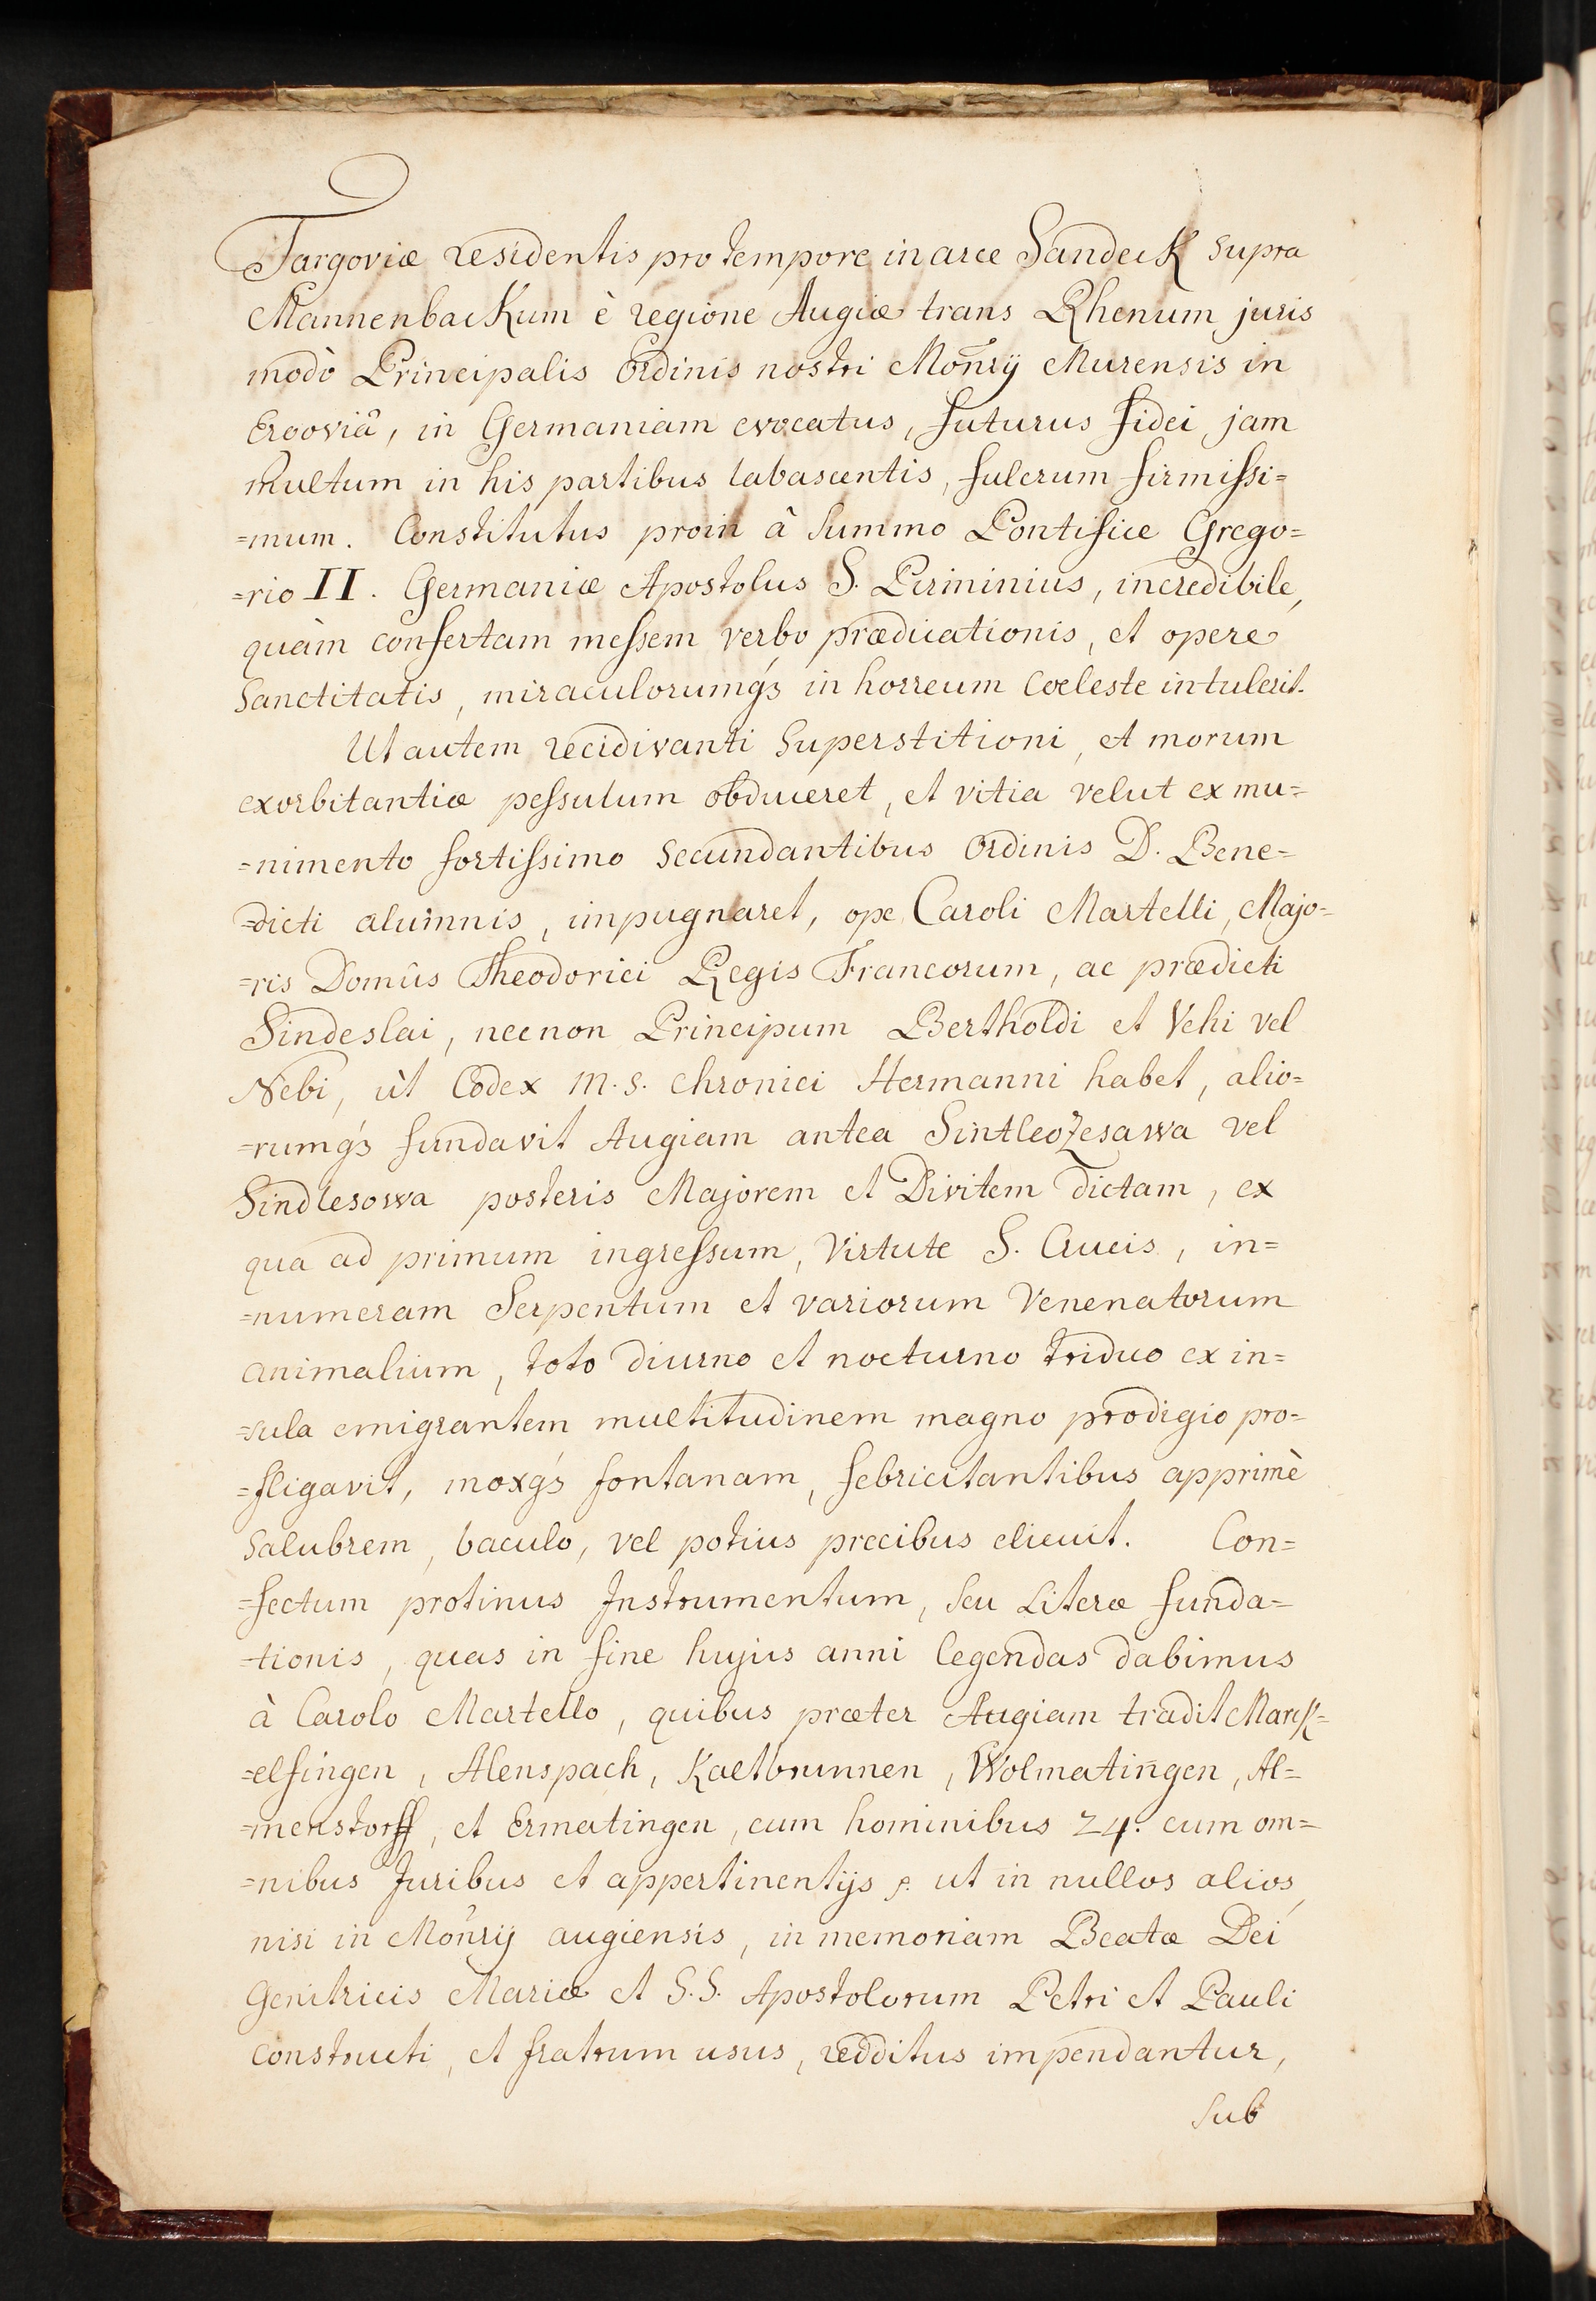 Targoviæ residentis pro tempore in arce Sandeck supra
Mannenbackum è regione Augiæ trans Rhenum juris
modò Principalis Ordinis nostri Monrÿ Murensis in
Ergoviâ, in Germaniam evocatus, futurus fidei jam
multum in his partibus labascentis, fulcrum firmissi=
=mum. Constitutus proin â Summo Pontifice Grego=
=rio II. Germaniæ Apostolus S. Pirminius, incredibile,
quàm confertam messem verbo prædicationis, et opere
Sanctitatis, miraculorumq́3 in horreum Coeleste intulerit.
Ut autem recidivanti Superstitioni, et morum
exorbitantiæ pessulum obduceret, et vitia velut ex mu=
=nimento fortissimo secundantibus Ordinis D. Bene=
=dicti alumnis, impugnaret, ope Caroli Martelli, Majo=
=ris Domûs Theodorici Regis Francorum, ac prædicti
Sindeslai, necnon Principum Bertholdi et Vehi vel
Nebi, ùt Codex M.S. Chronici Hermanni habet, alio=
=rumq́3 fundavit Augiam antea Sintleozesawa vel
Sindlesowa posteris Majorem et Divitem dictam, ex
qua ad primum ingressum, Virtute S. Crucis, in=
=numeram Serpentum et variorum Venenatorum
animalium, toto diurno et nocturno triduo ex in=
=sula emigrantem multitudinem magno prodigio pro=
=fligavit, moxq́3 fontanam, febricitantibus apprimè
salubrem, baculo, vel potius precibus elicuit. Con=
=fectum protinus Instrumentum, seu Literæ funda=
=tionis, quas in fine hujus anni legendas dabimus
à Carolo Martello, quibus præter Augiam tradit Marck=
=elfingen, Alenspach, Kaltbrunnen, Wolmatingen, Al=
=menstorff, et Ermatingen, cum hominibus 24. cum om=
=nibus Juribus et appertinentÿs p. ut in nullos alios,
nisi in Monrÿ augiensis, in memoriam Beatæ Dei
Genitricis Mariæ et S.S. Apostolorum Petri et Pauli
constructi, et fratrum usus, redditus impendantur,
Sub